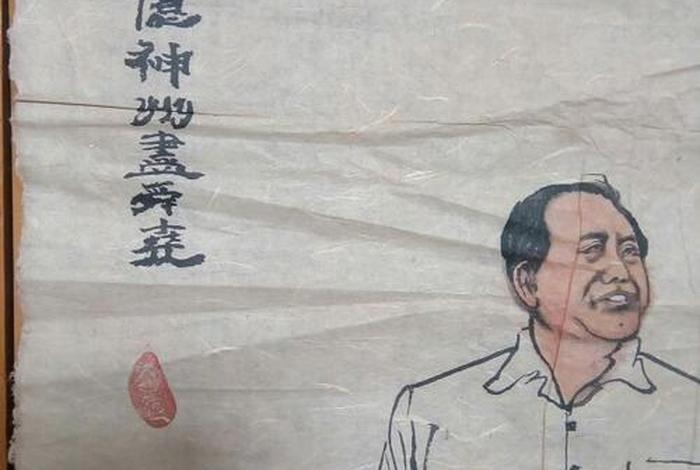 億神州盡舜堯